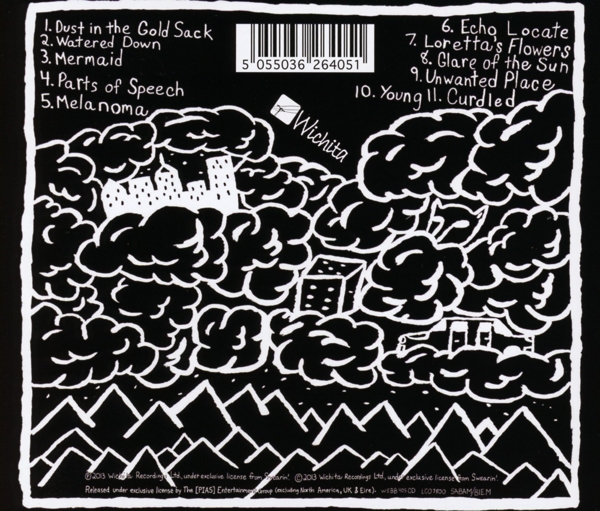 1. Dust in the Gold Sack
2. Watered Down
3. Mermaid
4. Parts of Speech
5. Melanoma
6. Echo Locate
7. Loretta's Flowers
8. Glare of the Sun
9. Unwanted Place
10. Young 11. Curdled
5 055036 264051
Wichita
℗2013 Wichita Recordings Ltd, under exclusive license from Swearin'. ©2013 Wichita Recordings Ltd, under exclusive license from Swearin'.
Released under exclusive license by The [PIAS] Entertainment Group (excluding North America, UK & Eire). WEBB405CD LC07800 SABAM/BIEM